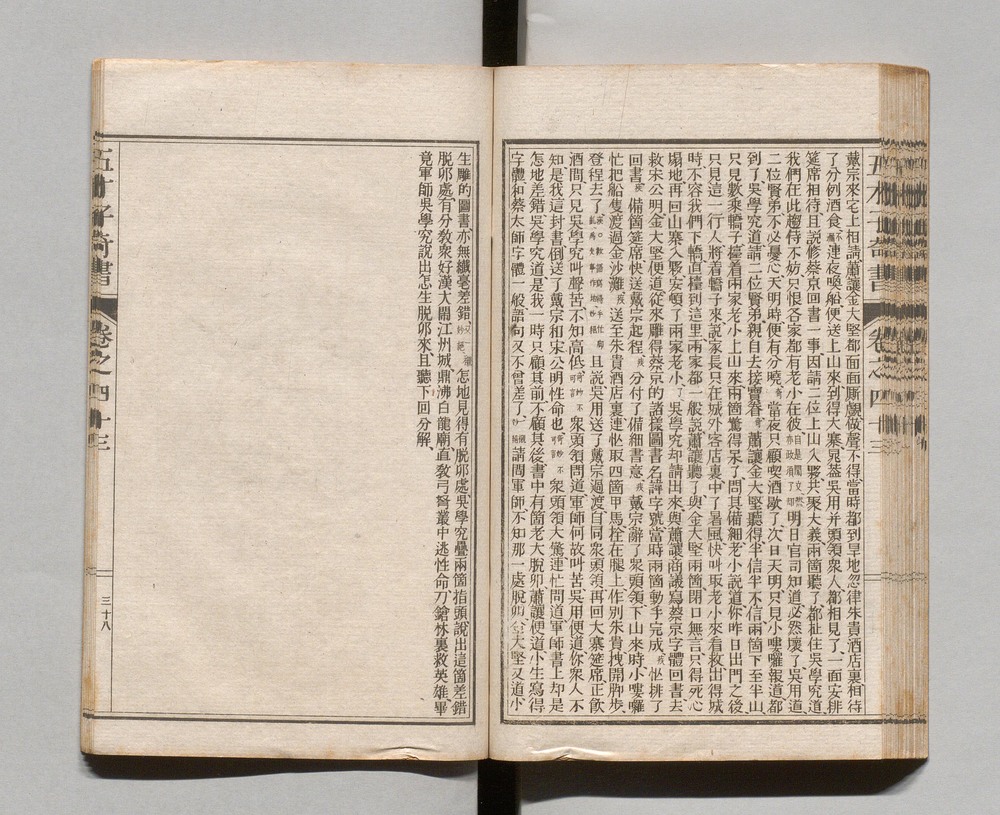 戴宗來宅上相請蕭讓金大堅都面面廝覷做聲不得當時都到旱地忽律朱貴酒店裏相待
了分例酒食連夜喚船便送上山來到得大寨晁葢吳用并頭領衆人都相見了一面安排
筵席相待且說修蔡京回書一事因請二位上山入夥共聚大義兩箇聽了都扯住吳學究道
我們在此趨侍不妨只恨各家都有老小在彼明日官司知道必然壞了吳用道
二位賢弟不必憂心天明時便有分曉當夜只顧喫酒歇了次日天明只見小嘍囉報道都
到了吳學究道請二位賢弟親自去接寶眷蕭讓金大堅聽得半信半不信兩箇下至半山
只見數乘轎子擡着兩家老小上山來兩箇驚得呆了問其備細老小說道你昨日出門之後
只見這一行人將着轎子來說家長只在城外客店裏中了暑風快叫取老小來看救出得城
時不容我們下轎直擡到這里兩家都一般說蕭讓聽了與金大堅兩箇閉口無言只得死心
塌地再回山寨入夥安頓了兩家老小吳學究却請出來與蕭讓商議寫蔡京字體回書去
救宋公明金大堅便道從來雕得蔡京的諸樣圖書名諱字號當時兩箇動手完成忙排了
回書備箇筵席快送戴宗起程分付了備細書意戴宗辭了衆頭領下山來時小嘍囉
忙把船隻渡過金沙灘送至朱貴酒店裏連忙取四箇甲馬拴在腿上作別朱貴拽開脚步
登程去了且說吳用送了戴宗過渡自同衆頭領再回大寨筵席正飲
酒間只見吳學究叫聲苦不知高低衆頭領問道軍師何故叫苦吳用便道你衆人不
知是我這封書倒送了戴宗和宋公明性命也衆頭領大驚連忙問道軍師書上却是
怎地差錯吳學究道是我一時只顧其前不顧其後書中有箇老大脫卯蕭讓便道小生寫得
字體和蔡太師字體一般語句又不曾差了請問軍師不知那一處脫卯金大堅又道小
生雕的圖書亦無纖毫差錯怎地見得有脫卯處吳學究疊兩箇指頭說出這箇差錯
脫卯處有分敎衆好漢大鬧江州城鼎沸白龍廟直敎弓弩叢中逃性命刀鎗林裏救英雄畢
竟軍師吳學究說出怎生脫卯來且聽下回分解
五才子奇書
卷之四十三
三十八